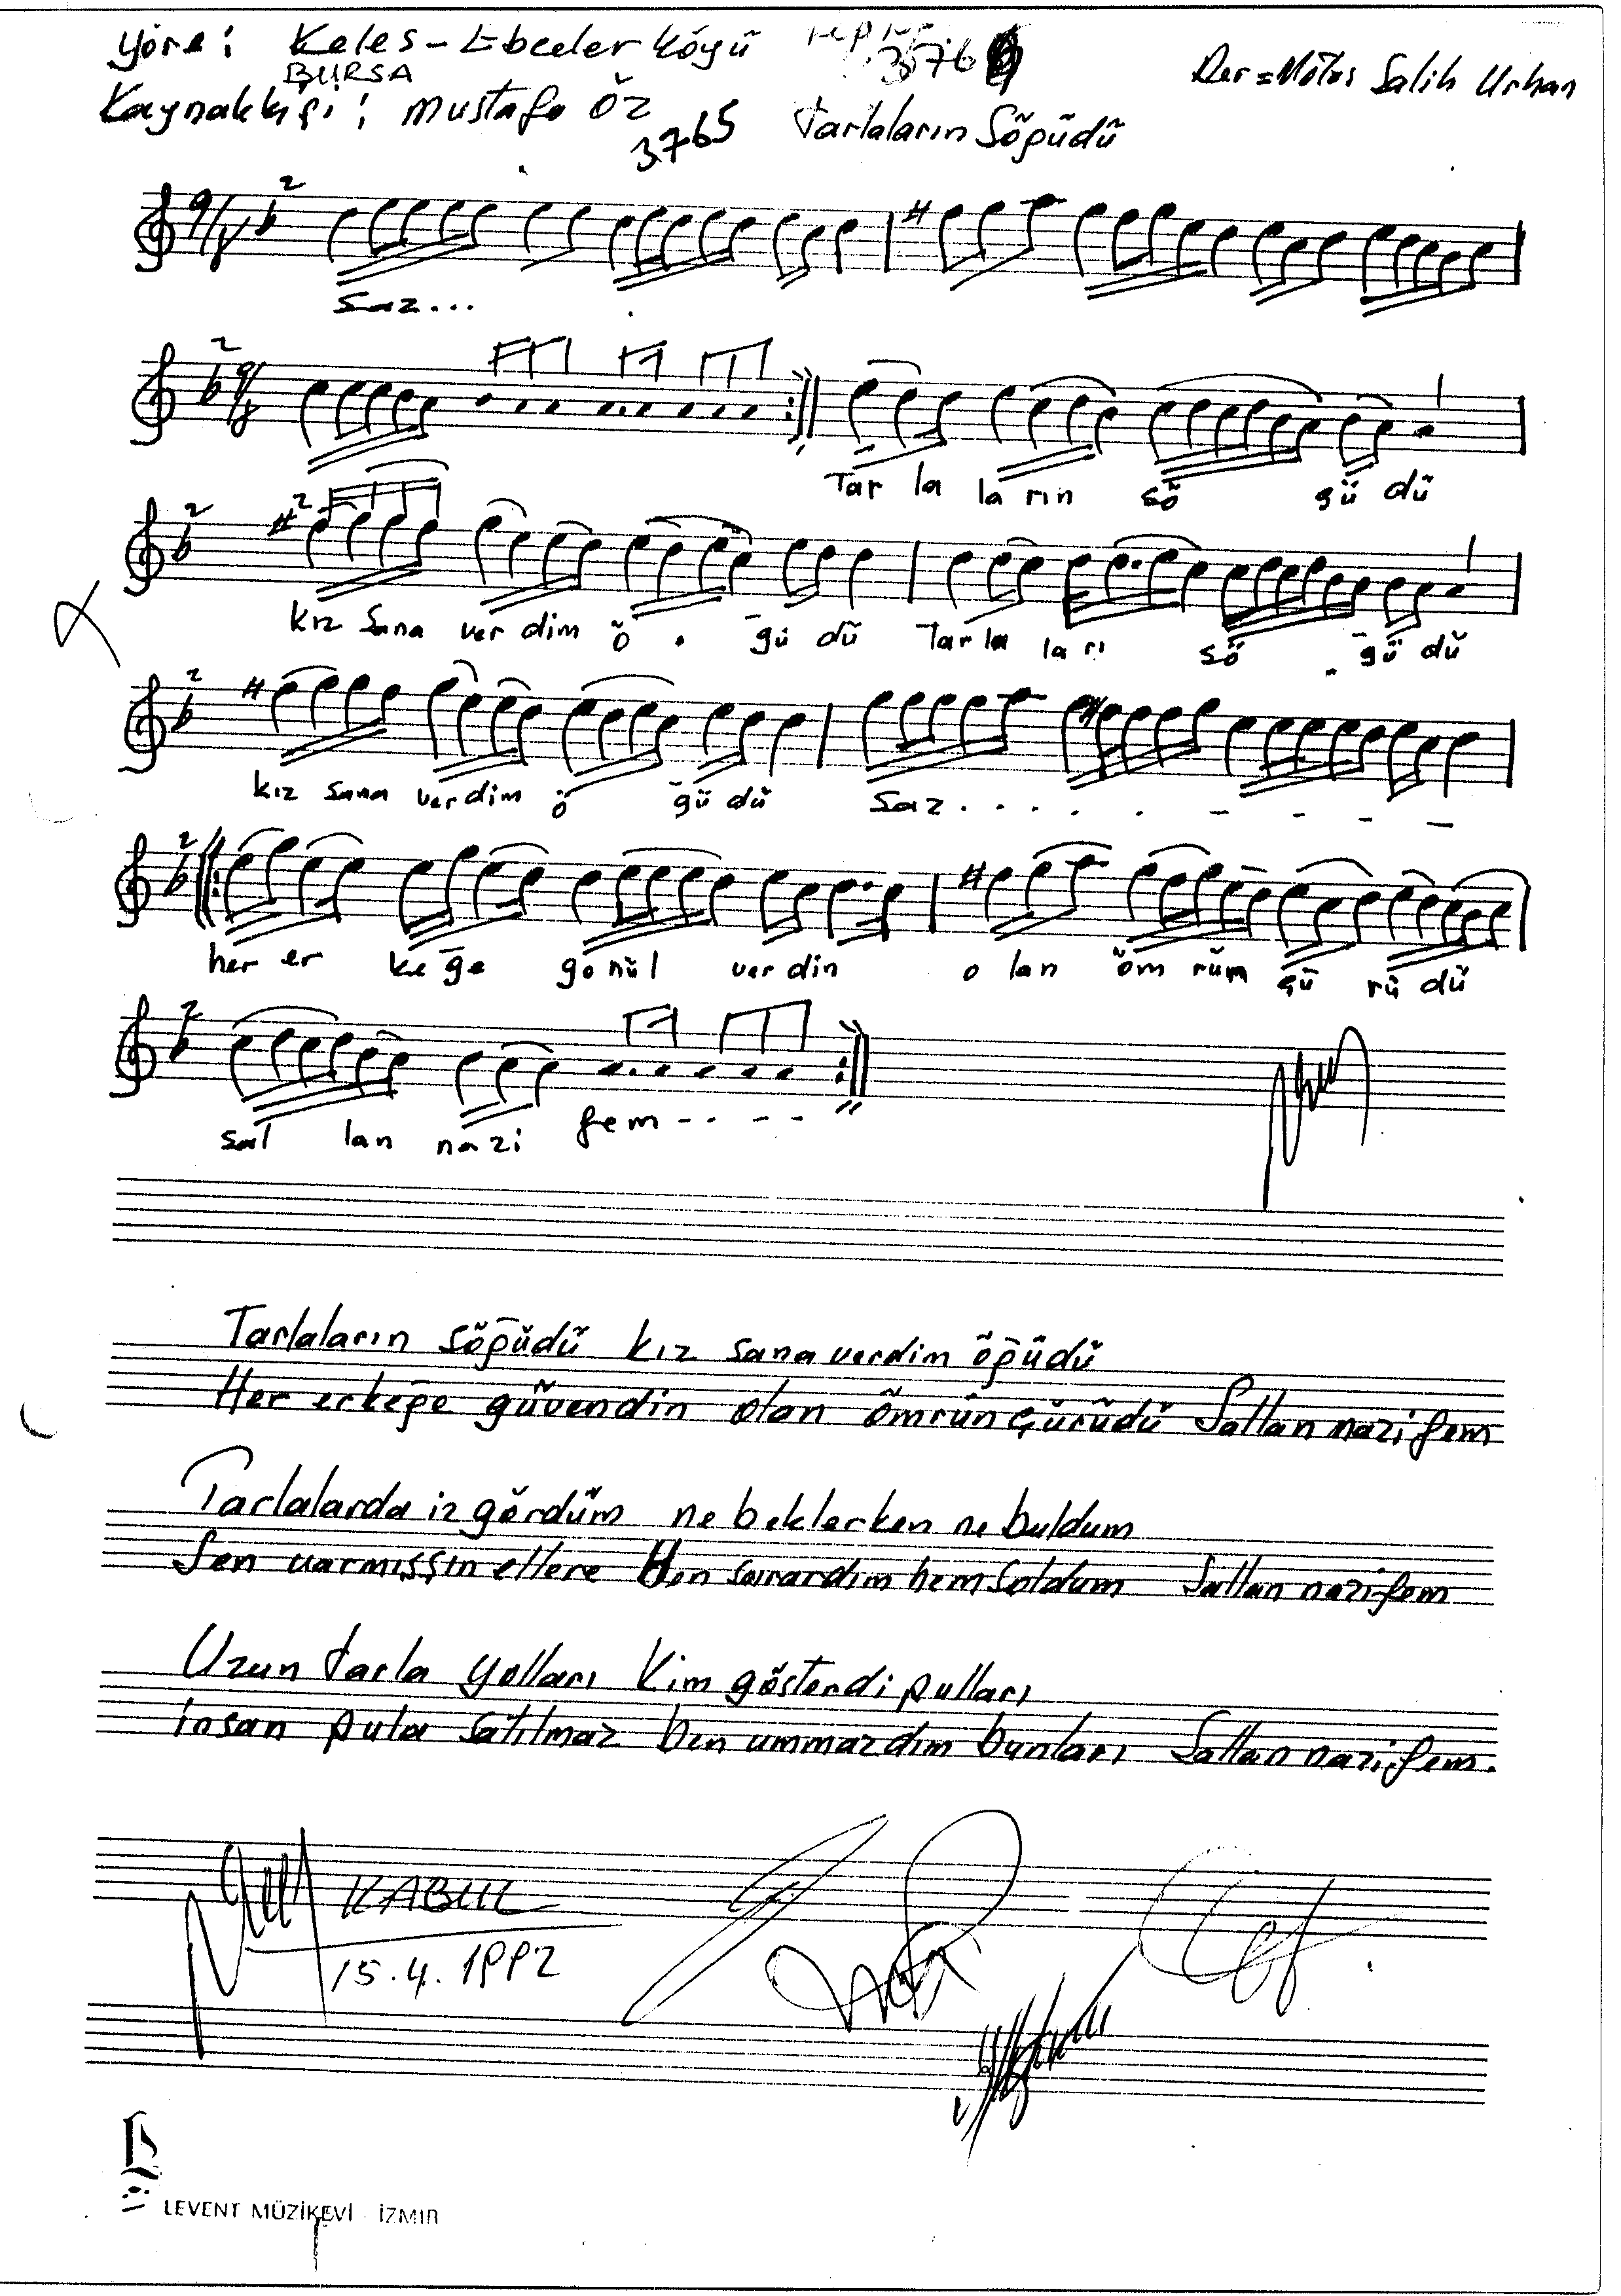 Yöre: Keles - Ebeler Köyü
BURSA
3766
Der = Nota: Salih Urhan
Kaynak kişi: Mustafa Öz
3765
Tarlaların Söğüdü
9/8
2
Saz...
2
9/8
Tar la la rın sö ğü dü
2
2
kız sana ver dim ö . ğü dü Tar la la rı sö . ğü dü
2
kız sana ver dim ö ğü dü saz . . . . . - - - -
2
her er ke ğe gö nül ver din o lan öm rüm çü rü dü
2
sal lan na zi fem - - - -
Tarlaların söğüdü kız sana verdim öğüdü
Her erkeğe güvendin olan ömrün çürüdü Sallan nazifem
Tarlalarda iz gördüm ne beklerken ne buldum
Sen varmışsın ellere Hen sarardım hem soldum Sallan nazifem
Uzun tarla yolları Kim gösterdi pulları
insan pula satılmaz ben ummazdım bunları Sallan nazifem.
KABUL
15.4.1992
LEVENT MÜZİKEVİ - İZMİR